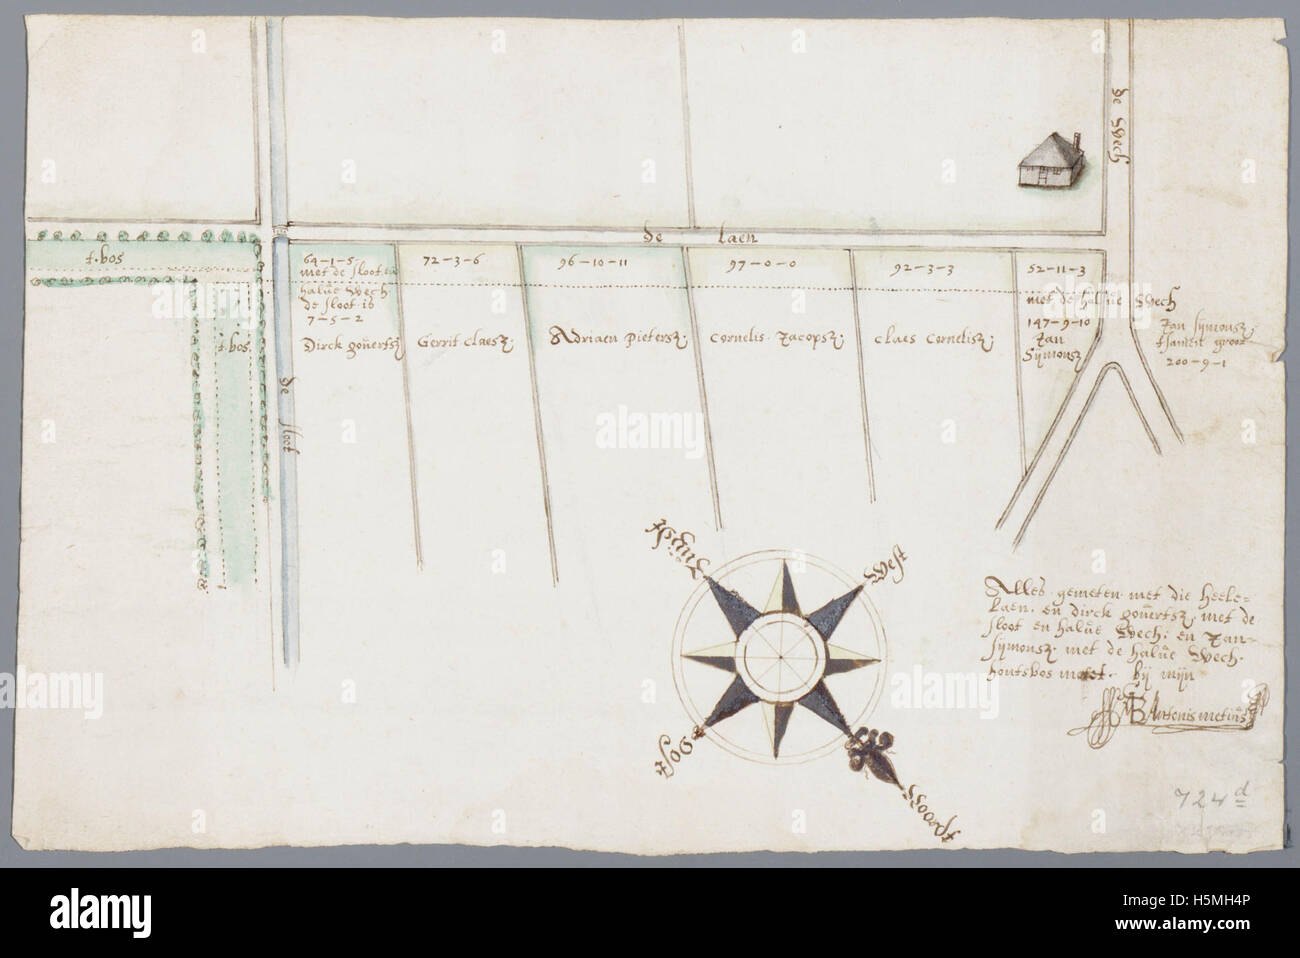 de Wech
de Laen
t. bos
64-1-5-
met de sloot en
halve Wech
de sloot is
7-5-2
Dirck govertsz
72-3-6
Gerrit Claesz.
96-10-11
Adriaen Pietersz.
97-0-0
Cornelis Jacopsz.
92-3-3
Claes Cornelisz.
52-11-3
met de halve Wech
147-9-10
Jan
Symonsz
Jan Symonsz
200-9-1
t. bos.
de sloot
Zuijdt
West
Oost
Noordt
Alles gemeten met die heele-
Laen. en Dirck govertsz. met de
sloot en halve Wech; en Jan-
symonsz. met de halve Wech.
houtsbos maet. bij mijn
Antonis metius
724 d
alamy
alamy
alamy
alamy
Image ID: H5MH4P
www.alamy.com